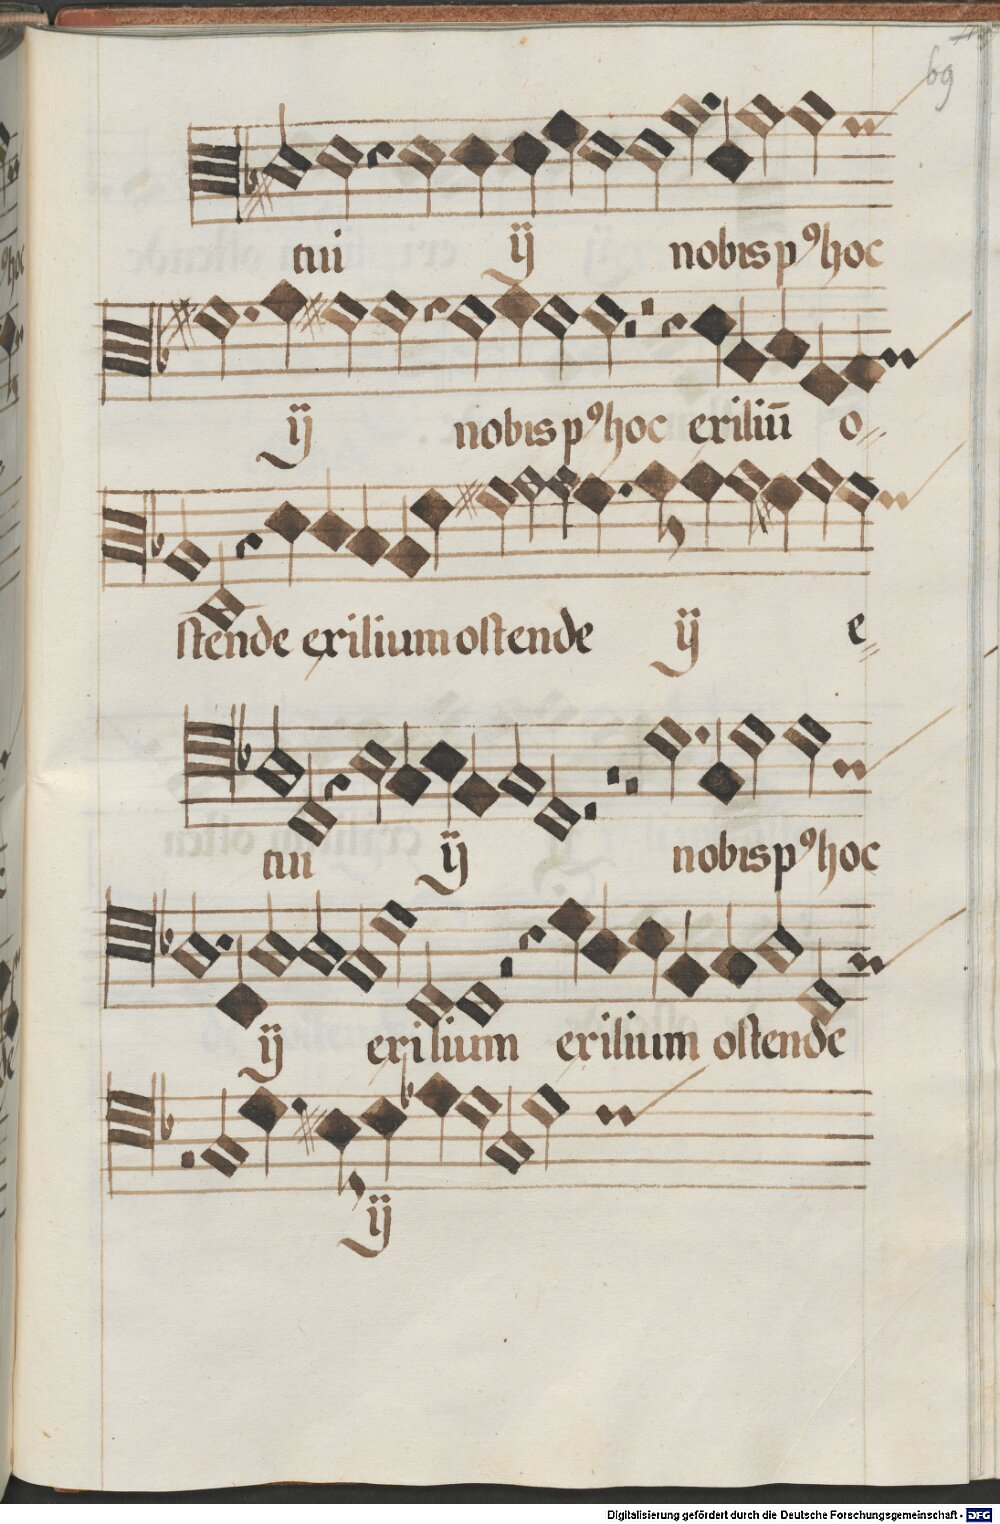 69
tui ij nobis pꝰ hoc
ij nobis pꝰ hoc exiliū o⸗
ſtende exilium oſtende ij e⸗
tui ij nobis pꝰ hoc
ij exilium exilium oſtende
ij
Digitalisierung gefördert durch die Deutsche Forschungsgemeinschaft - DFG